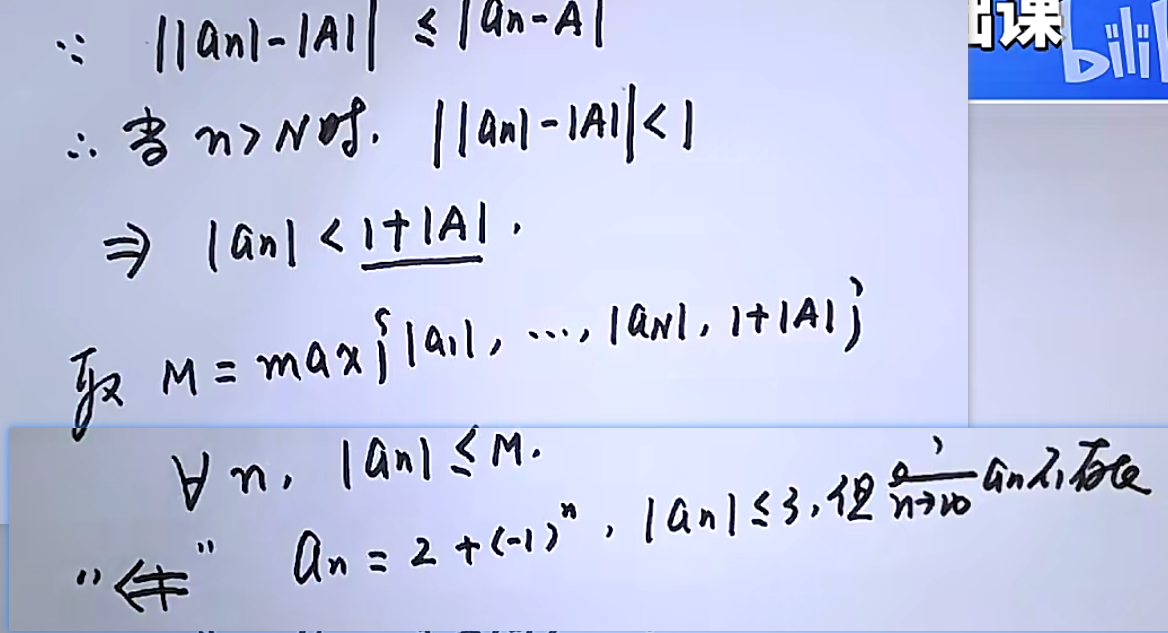 ∵ ||an|-|A|| ≤ |an-A|
础课
bili
∴ 当 n>N时. ||an|-|A||<1
⇒ |an| < 1+|A|.
取 M = max{|a1|, ..., |aN|, 1+|A|}
∀n, |an| ≤ M.
"⇍" an = 2+(-1)^n, |an| ≤ 3, 但 lim n→∞ an 不存在